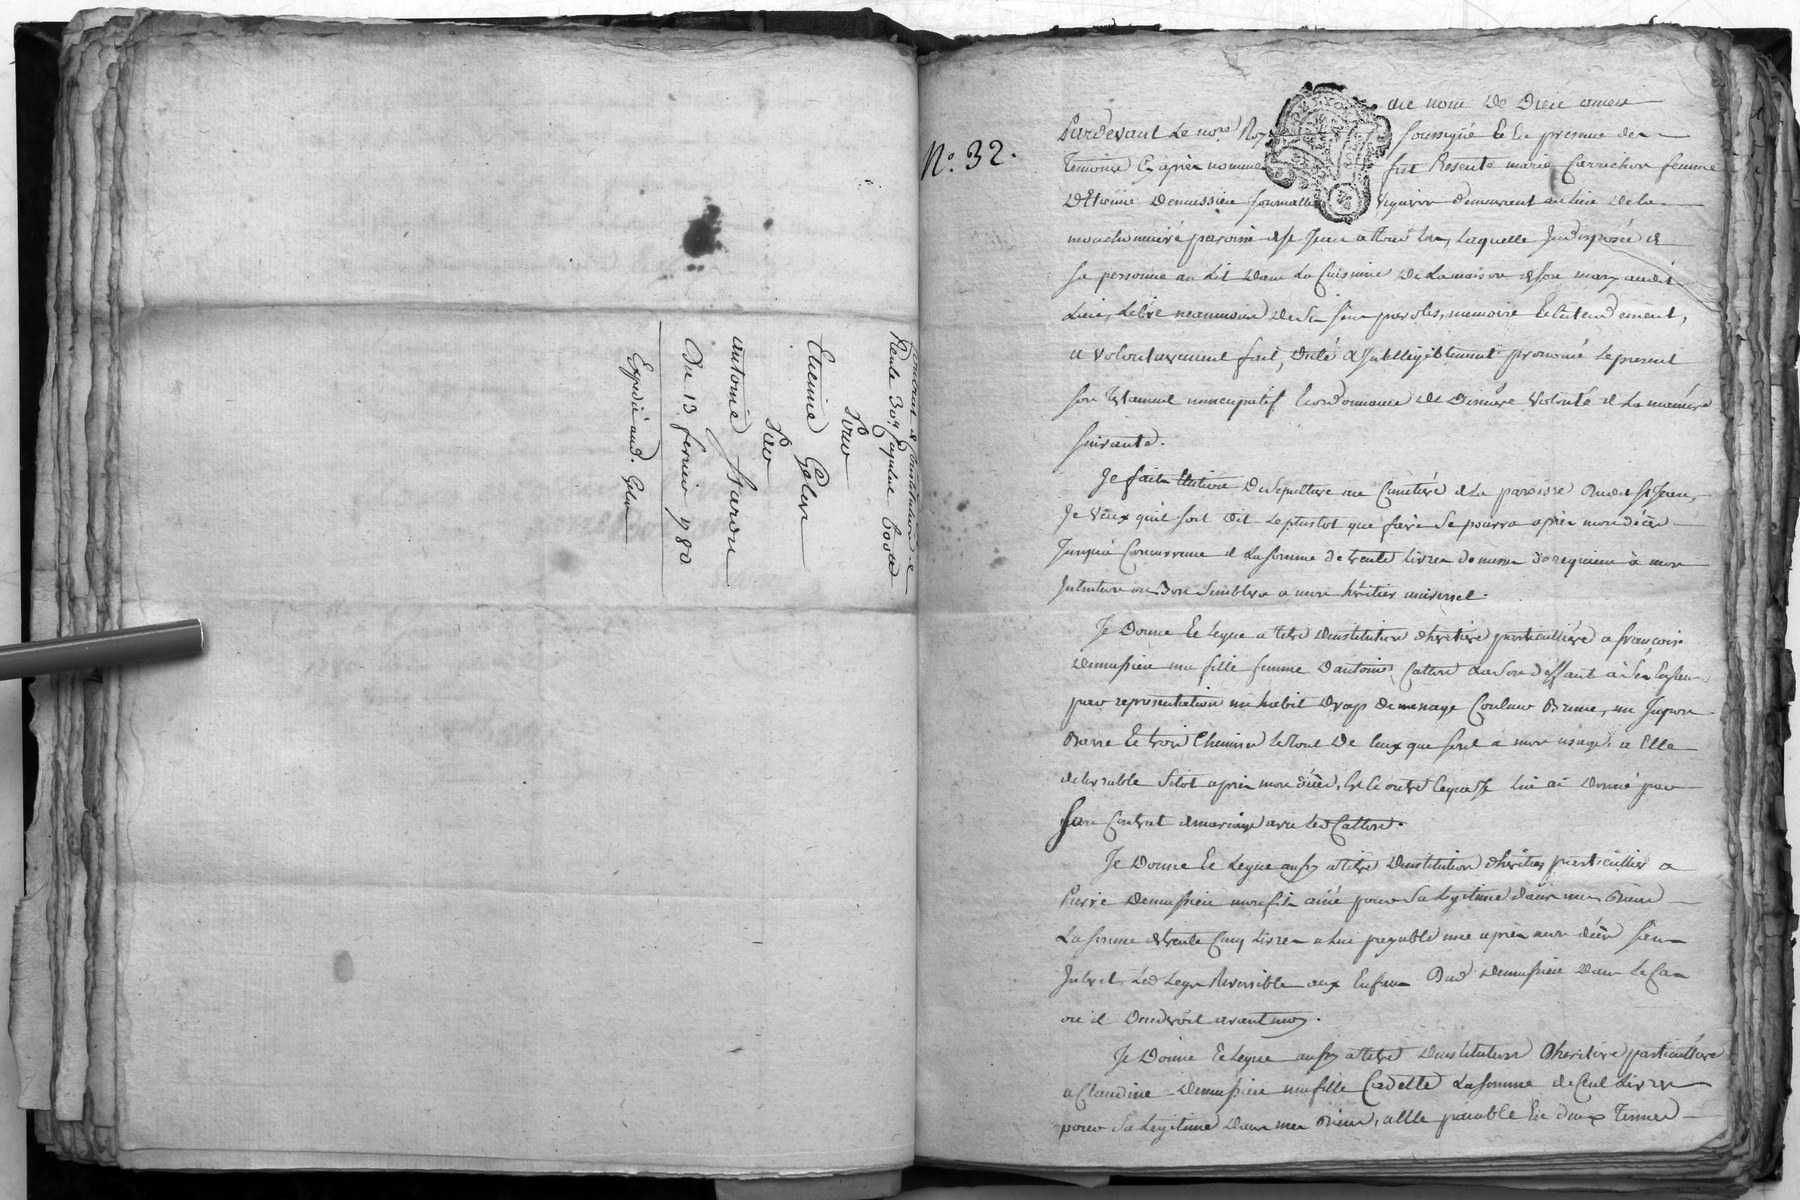 Contrat de Constitution de
Rente 30# Capital 600#
Pour
Etienne
Par
antoine
Du 13 fevrier 1780
Expedié aud.
N.° 32.
au nom De Dieu amen
Pardevant Le no.re Roy soussigné Et En presence des
Temoins Cy après nommés fut Presente marie Carrichon femme
D'Etienne Demussieu journallier Vigneron demeurant au lieu de la
paroisse de St Jean a Laquelle Indisposée de
sa personne au Lit Dans La Cuisine De La maison de son mary audit
Lieu, Libre neanmoins De Ses sens paroles, memoire Et Entendement,
a Volontairement fait, Dicté & Intelligiblement prononcé Le present
son testament noncupatif Et ordonnance De Derniere Volonté de La maniere
suivante.
Je fais De sepulture au Cimetiere de La paroisse Dudit St Jean,
Je veux qu'il soit Dit Le plustot que faire Se pourra après mon décès
Jusqu'à Concurrence de La somme de trente Livres de messes de requiem à mon
Intention ou Bon Semblera a mon héritier universel.
Je Donne Et Legue a titre D'institution d'heritiere particulliere a françoise
Demussieu ma fille femme D'antoine Catton & a Son deffaut à Ses Enfans
par representation un habit Drap De menage Couleur Brune, un Jupon
Barré Et trois Chemises Le tout De Ceux que sont a mon usage, a Elle
delivrable Sitot après mon décès, Et Ce outre Ce que Je Lui ai Donné par
son Contrat de mariage avec Led Catton.
Je Donne Et Legue aussy a titre D'institution d'heritier particullier a
Pierre Demussieu mon fils ainé pour Sa Legitime dans mes Biens
La somme de trente Cinq Livres a Lui payable une après mon décès sans
Interet, Led Legs Reversible aux Enfans Dud Demussieu Dans Le Cas
ou il Decederoit avant moy.
Je Donne Et Legue aussy a titre D'institution D'heritiere particulliere
a Claudine Demussieu ma fille Cadette La somme de Cent Livres
pour Sa Legitime Dans mes Biens, a Elle payable En deux Termes